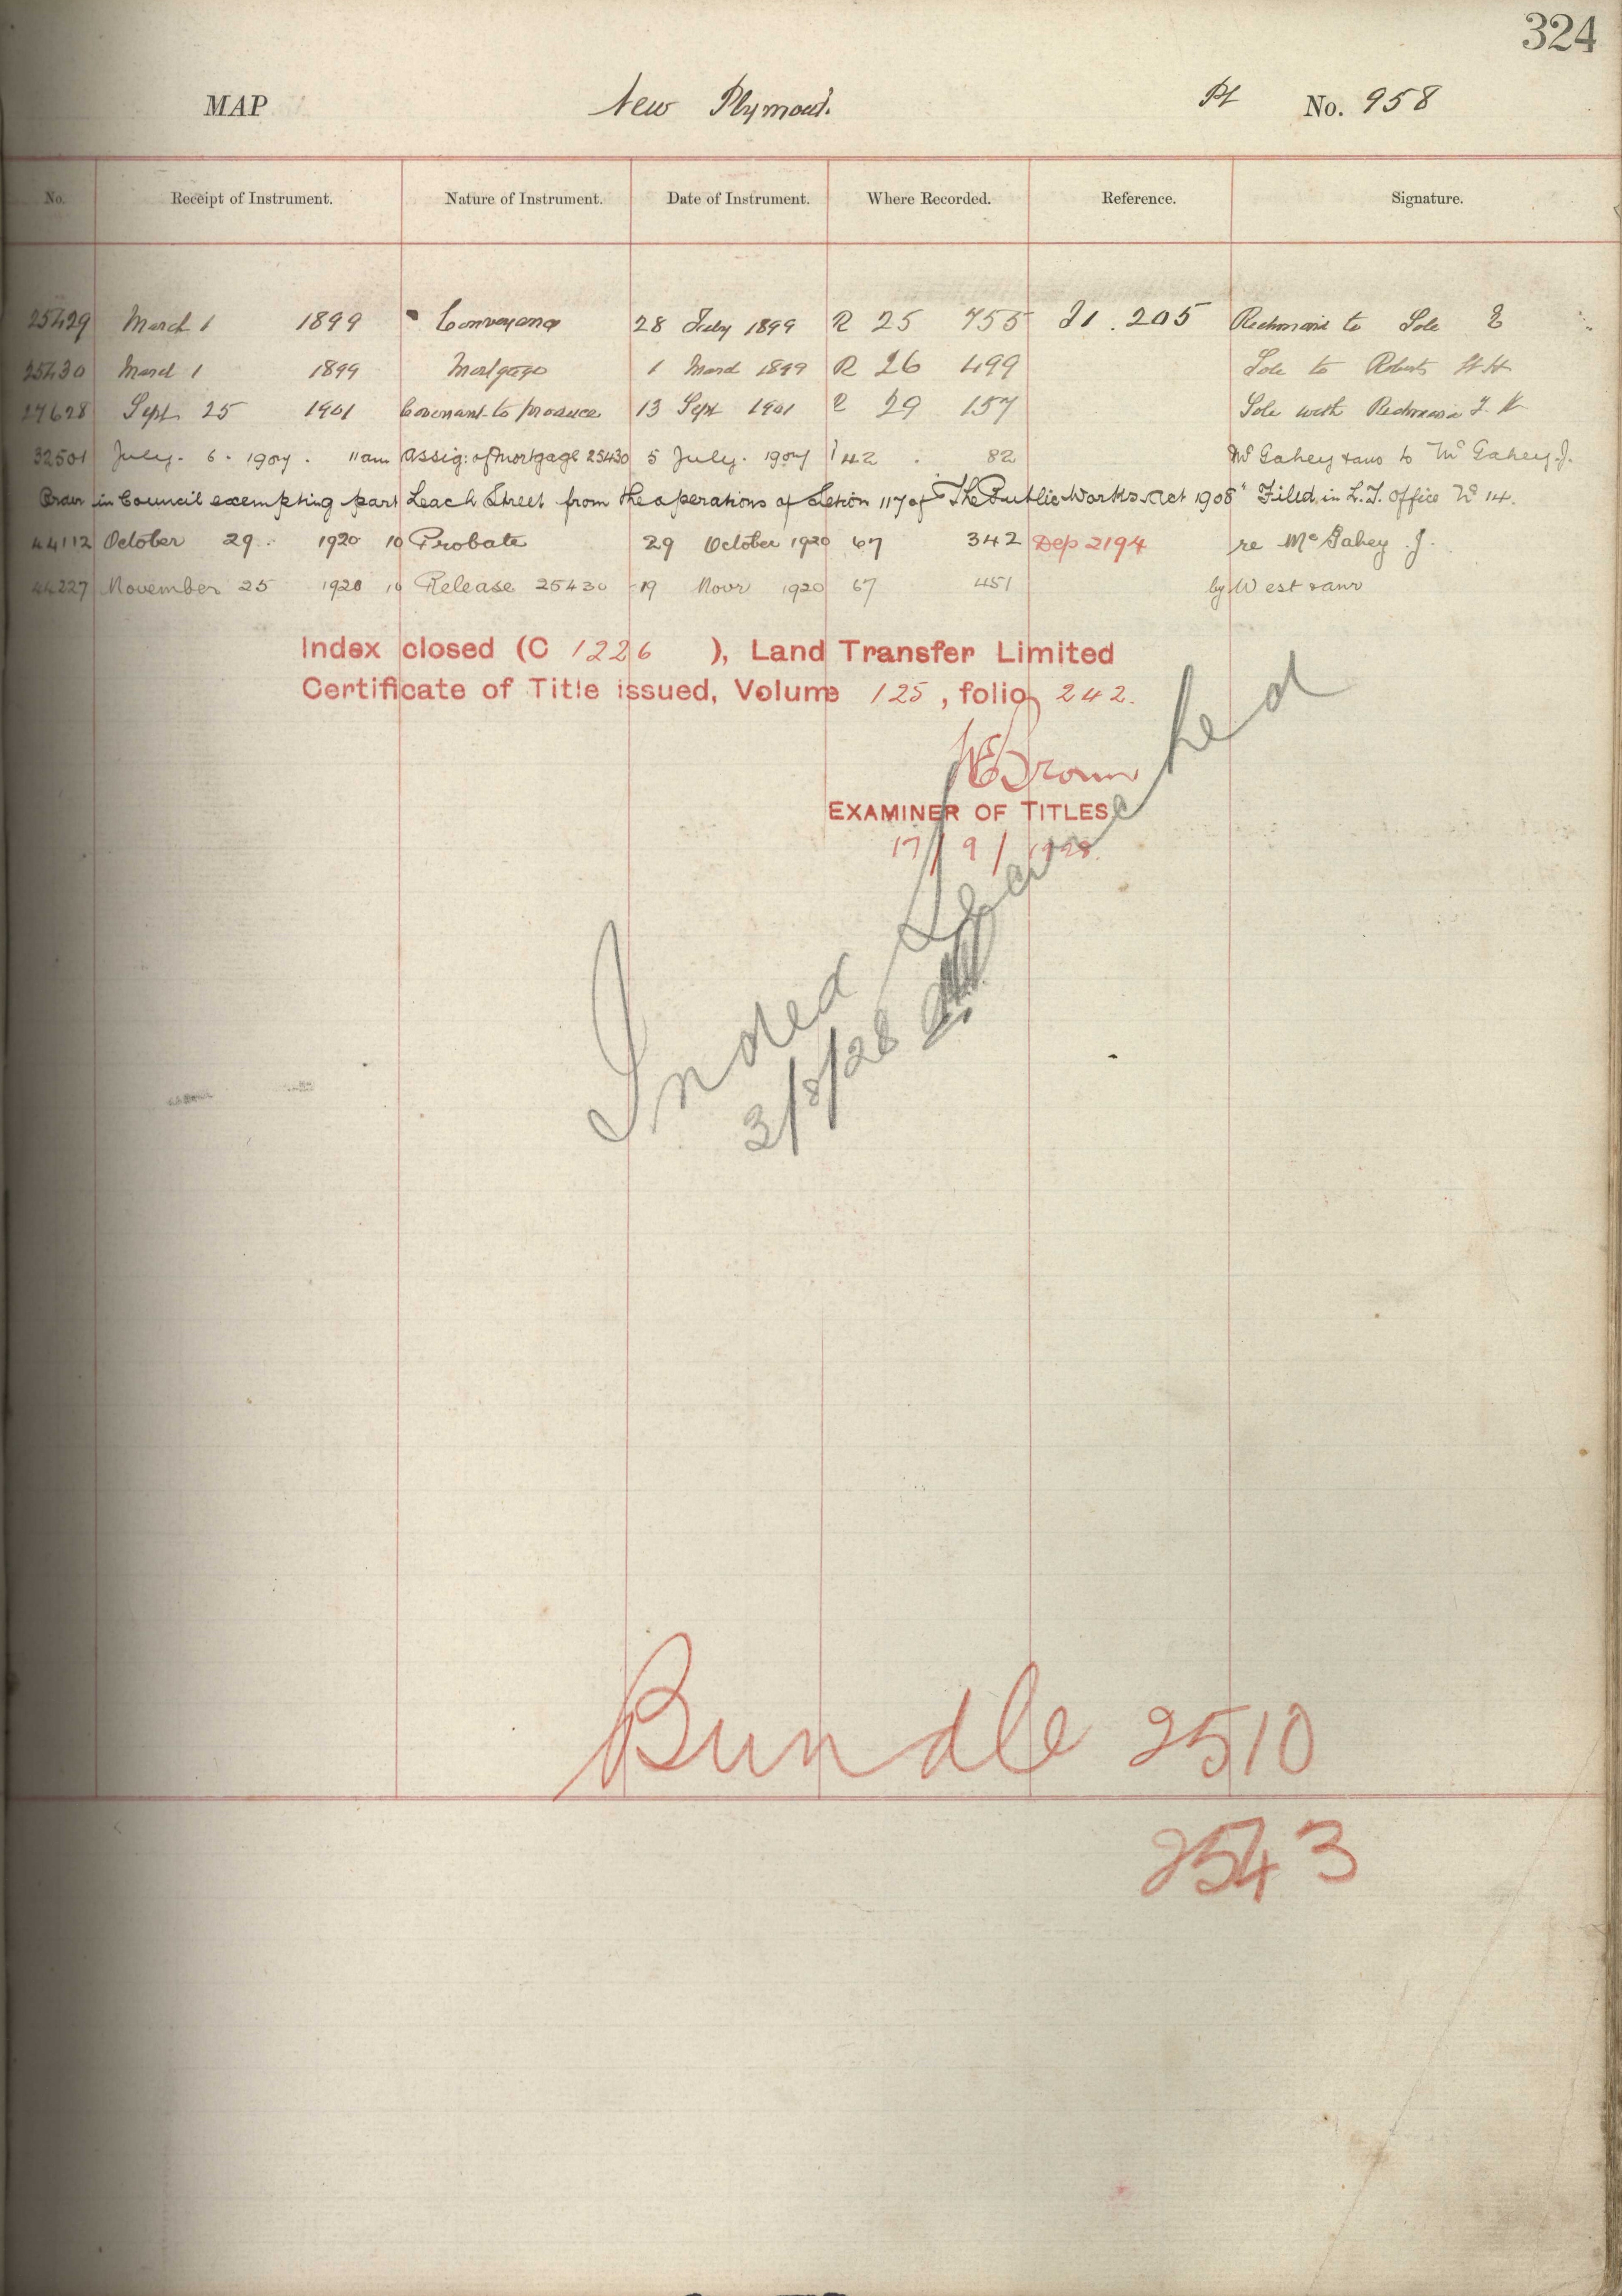 324
MAP New Plymout. Pt No. 958
No. Receipt of Instrument. Nature of Instrument. Date of Instrument. Where Recorded. Reference. Signature.
25429 March 1 1899 Conveyance 28 July 1899 R 25 755 I1. 205 Redmond to Sole E
25430 March 1 1899 Mortgage 1 March 1899 R 26 499 Sole to Roberts
27628 Sept 25 1901 Covenant to produce 13 Sept 1901 R 29 157 Sole with
32501 July. 6. 1907. 11am Assig: of Mortgage 25430 5 July. 1907 42 82 McGahey & anr to McGahey. J.
Order in Council exempting part Leach Street from the operations of Section 117 of "The Public Works Act 1908" Filed in L.T. Office No 14.
44112 October 29. 1920 10 Probate 29 October 1920 67 342 Dep 2194 re McGahey J.
44227 November 25 1920 10 Release 25430 19 Novr 1920 67 451 by West & anr
Index closed (C 1226 ), Land Transfer Limited
Certificate of Title issued, Volume 125, folio 242.
Brown
EXAMINER OF TITLES
17/9/1928.
Index Searched
3/8/28
Bundle 2510
2543